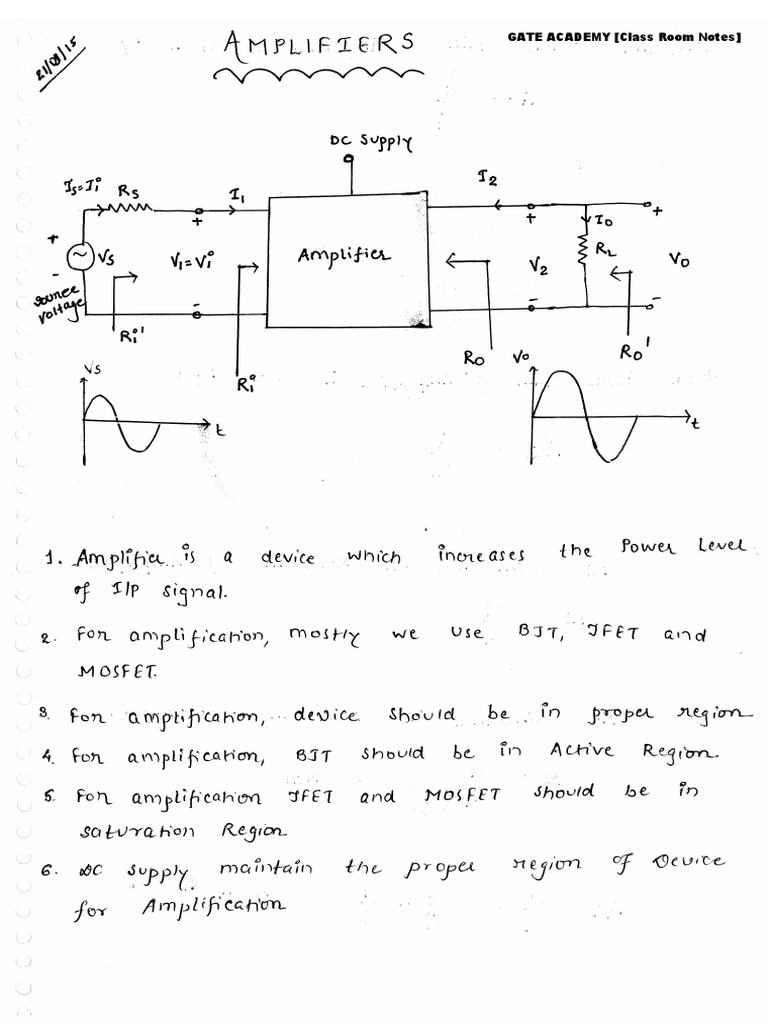 21/08/15
AMPLIFIERS
GATE ACADEMY [Class Room Notes]
DC Supply
Is=Ii
Rs
I1
I2
+
+
+
I0
+
Vs
V1=Vi
Amplifier
V2
RL
Vo
-
source
voltage
-
-
-
Ri'
Ri
Ro
Ro'
Vs
t
Vo
t
1. Amplifier is a device which increases the Power Level
of I/P signal.
2. For amplification, mostly we use BJT, JFET and
MOSFET.
3. For amplification, device should be in proper region
4. For amplification, BJT should be in Active Region.
5. For amplification JFET and MOSFET should be in
saturation Region
6. DC supply maintain the proper region of Device
for Amplification